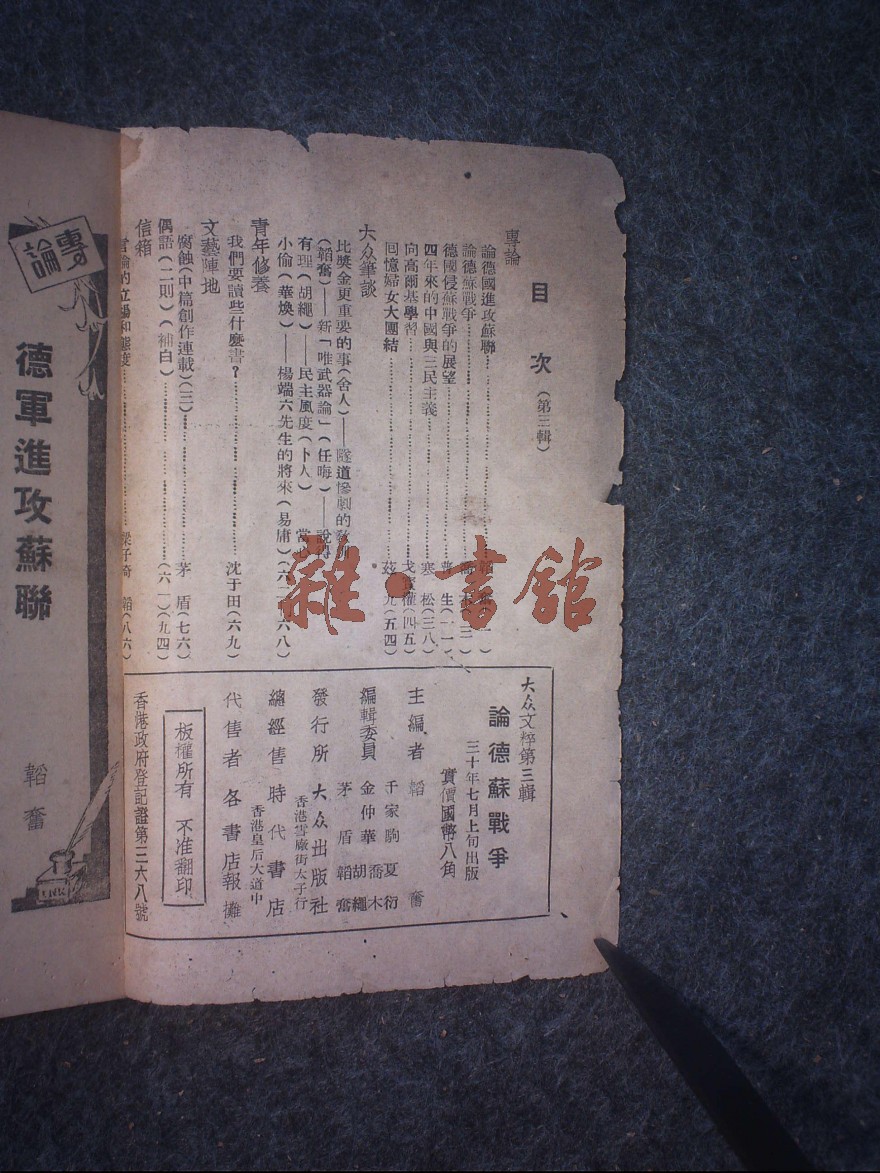 目次(第三輯)
專論
論德國進攻蘇聯
論德蘇戰爭 (三)
德國侵蘇戰爭的展望 生(一一)
四年來的中國與三民主義 寒松(三八)
向高爾基學習 戈 權(四五)
回憶婦女大團結 茲九(五四)
大众筆談
比獎金更重要的事(舍人)——隧道慘劇的教訓
(韜奮)——新「唯武器論」(任晦)——說得
有理(胡繩)——民主風度(卜人)
小偷(華煥)——楊端六先生的將來(易庸)(六二 六八)
青年修養
我們要讀些什麽書? 沈于田(六九)
文藝陣地
腐蝕(中篇創作連載)(三) 茅盾(七六)
偶語(二則)(補白) (六一)(九四)
信箱
言論的立場和態度 梁子琦 韜(八六)
大众文粹第三輯
論德蘇戰爭
三十年七月上旬出版
實價國幣八角
主編者 韜奮
編輯委員 千家駒 夏衍
金仲華 喬木
茅盾 胡繩
韜奮
發行所 大众出版社
香港雪廠街太子行
總經售 時代書店
香港皇后大道中
代售者 各書店報攤
板權所有 不准翻印
香港政府登記證第三二六八號
專論
德軍進攻蘇聯
韜奮
雜·書館